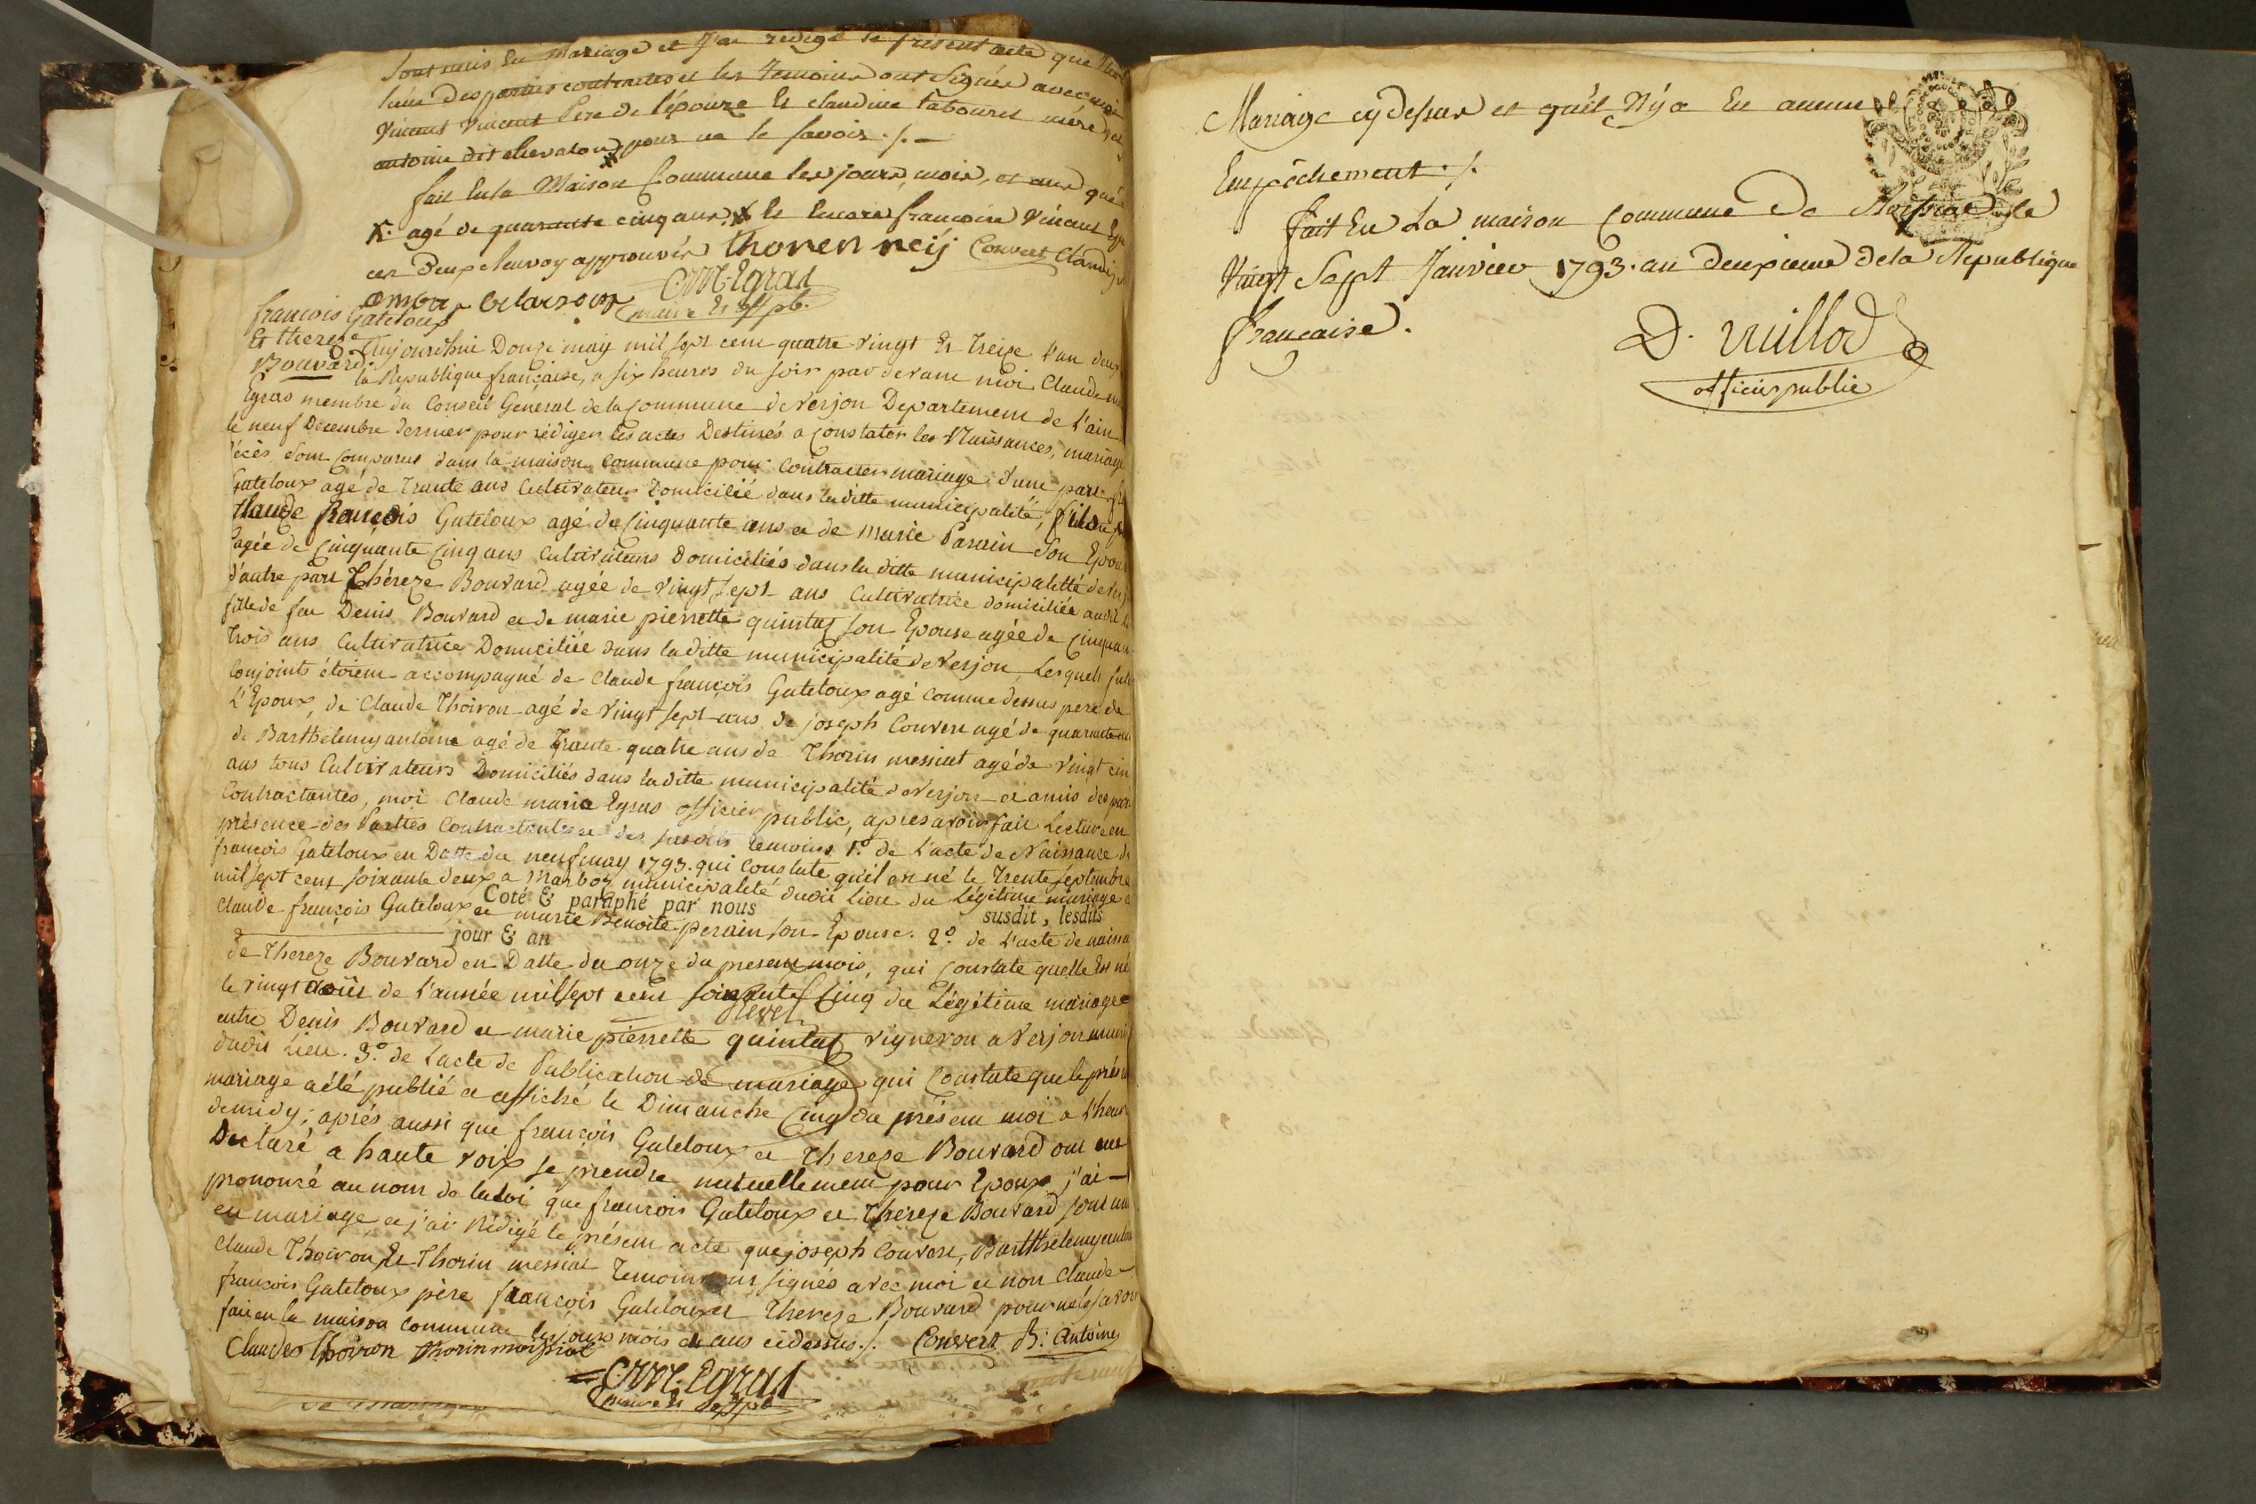 Sont unis En Mariage et J'ai redigé le présent acte que
lune des parties contractes et les temoins ont Signés avec moi
Vincent Pere de l'épouze Et claudine Tabouret mere, et
antoine dit chevalon pour ne le savoir ./. —
fait En la Maison Commune les jours, mois, et ans que
X. agé de quarante cinq ans, X Et Encore francoise Vincent
ces Deux renvoy approuvés thoner neij Convert Claudi
C M Egras
maire Et off pb.
françois Gateloup
Et thereze
Bouvard.
Aujourdhui Douze may mil sept cent quatre vingt Et treize l'an deux
la Republique française, a six heures du soir par devant moi Claude
Egras membre du Conseil General de la Commune de Verjon Departement de l'ain
le neuf Decembre dernier pour rédiger les actes Destinés a Constater les Naissances, mariage
décès sont Comparus dans la maison Commune pour Contracter mariage, d'une part
Gateloup agé de Trente ans Cultivateur Domicilié dans la ditte municipalité, fils
Claude françois Gateloup agé de Cinquante ans et de Marie Parain son Epouse
agée de Cinquante Cinq ans Cultivateurs Domiciliés dans la ditte municipalitté de Verj
d'autre part Théreze Bouvard agée de vingt sept ans Cultivatrice domiciliée audit
fille de feu Denis Bouvard et de marie pierrette quintat son Epouse agée de Cinquan
trois ans Cultivatrice Domiciliée dans la ditte municipalité de Verjon, Lesquels
Conjoints étoient accompagné de Claude françois Gateloup agé comme dessus pere de
L'Epoux, de Claude Thoiron agé de vingt sept ans, de joseph Convert agé de quarante
de Barthelemy antoine agé de Trante quatre ans de Thorin messiat agé de vingt cin
ans tous Cultivateurs Domiciliés dans la ditte municipalité de Verjon et amis des par
Contractantes, moi Claude marie Egras officier public, apres avoir fait Lecture en
présence des Partties Contractantes et des susdits temoins 1.° de l'acte de Naissance de
françois Gateloup en Datte du neuf may 1793. qui Constate quil est né le Trente septembre
mil sept cent soixante deux a Marboz municipalité dudit Lieu du Légitime mariage
Coté & paraphé par nous susdit, lesdits
Claude françois Gateloup et marie Benoite perain son Epouse. 2.° de L'acte de naissa
jour & an
de Thereze Bouvard en Datte du onze du present mois, qui Constate quelle Est né
le vingt août de l'année mil sept cent soixante Cinq du Légitime mariage
entre Denis Bouvard et marie pierrette quintat vigneron a Verjon muni
dudit Lieu. 3.° de Lacte de Publication de mariage qui Constate que le prés
mariage a été publié et affiché le Dimanche Cinq du présent moi a l'heur
de midy; aprés aussi que françois Gateloup et Thereze Bouvard ont eu
Declaré a haute voix se prendre mutuellement pour Epoux j'ai —
prononcé au nom de la Loi que francois Gateloup et Théreze Bouvard sont uni
en mariage et j'ai Rédigé le présent acte que joseph Convert, Barthelemy antoi
Claude Thoiron Et Thorin messiat Temoins ont signés avec moi et non Claude
françois Gateloup père françois Gateloup et Thereze Bouvard pour ne le savoir
fait en la maison Commune les jour mois et ans cidessus ./. Convert B: Antoine
Claude thoiron thorin messiat
C M Egras
maire Et off pb

Mariage cy dessus et qu'il N'y a Eu aucun
Empêchement ./.
fait En La maison Commune de
Vingt Sept Janvier 1793. an deuxieme de la Republique
française.
D. Vuillod
officier public